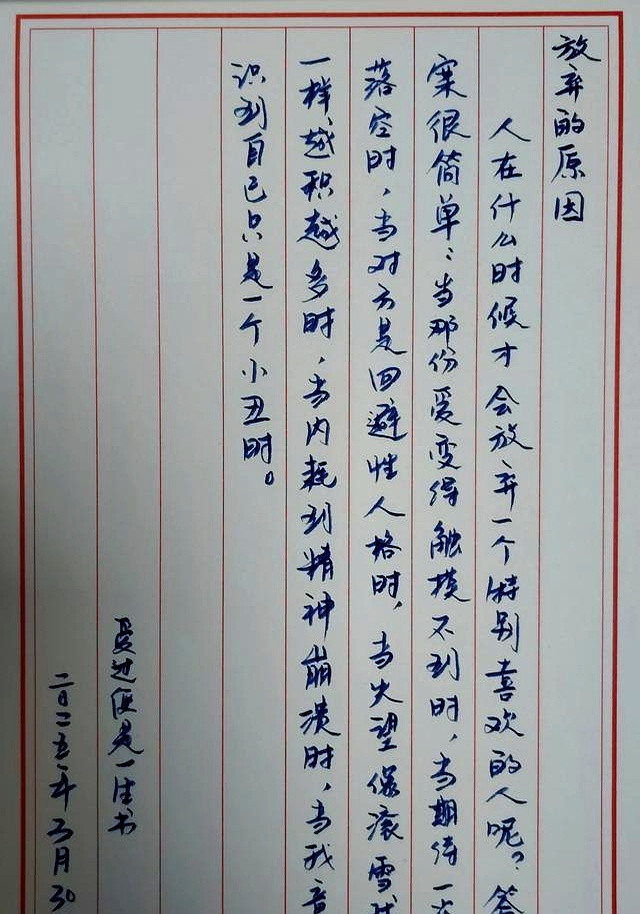 放弃的原因
人在什么时候才会放弃一个特别喜欢的人呢？答
案很简单：当那份爱变得触摸不到时，当期待一次
落空时，当对方是回避性人格时，当失望像滚雪球
一样，越积越多时，当内耗到精神崩溃时，当我意
识到自己只是一个小丑时。
爱过便是一生书
二〇二五年三月30